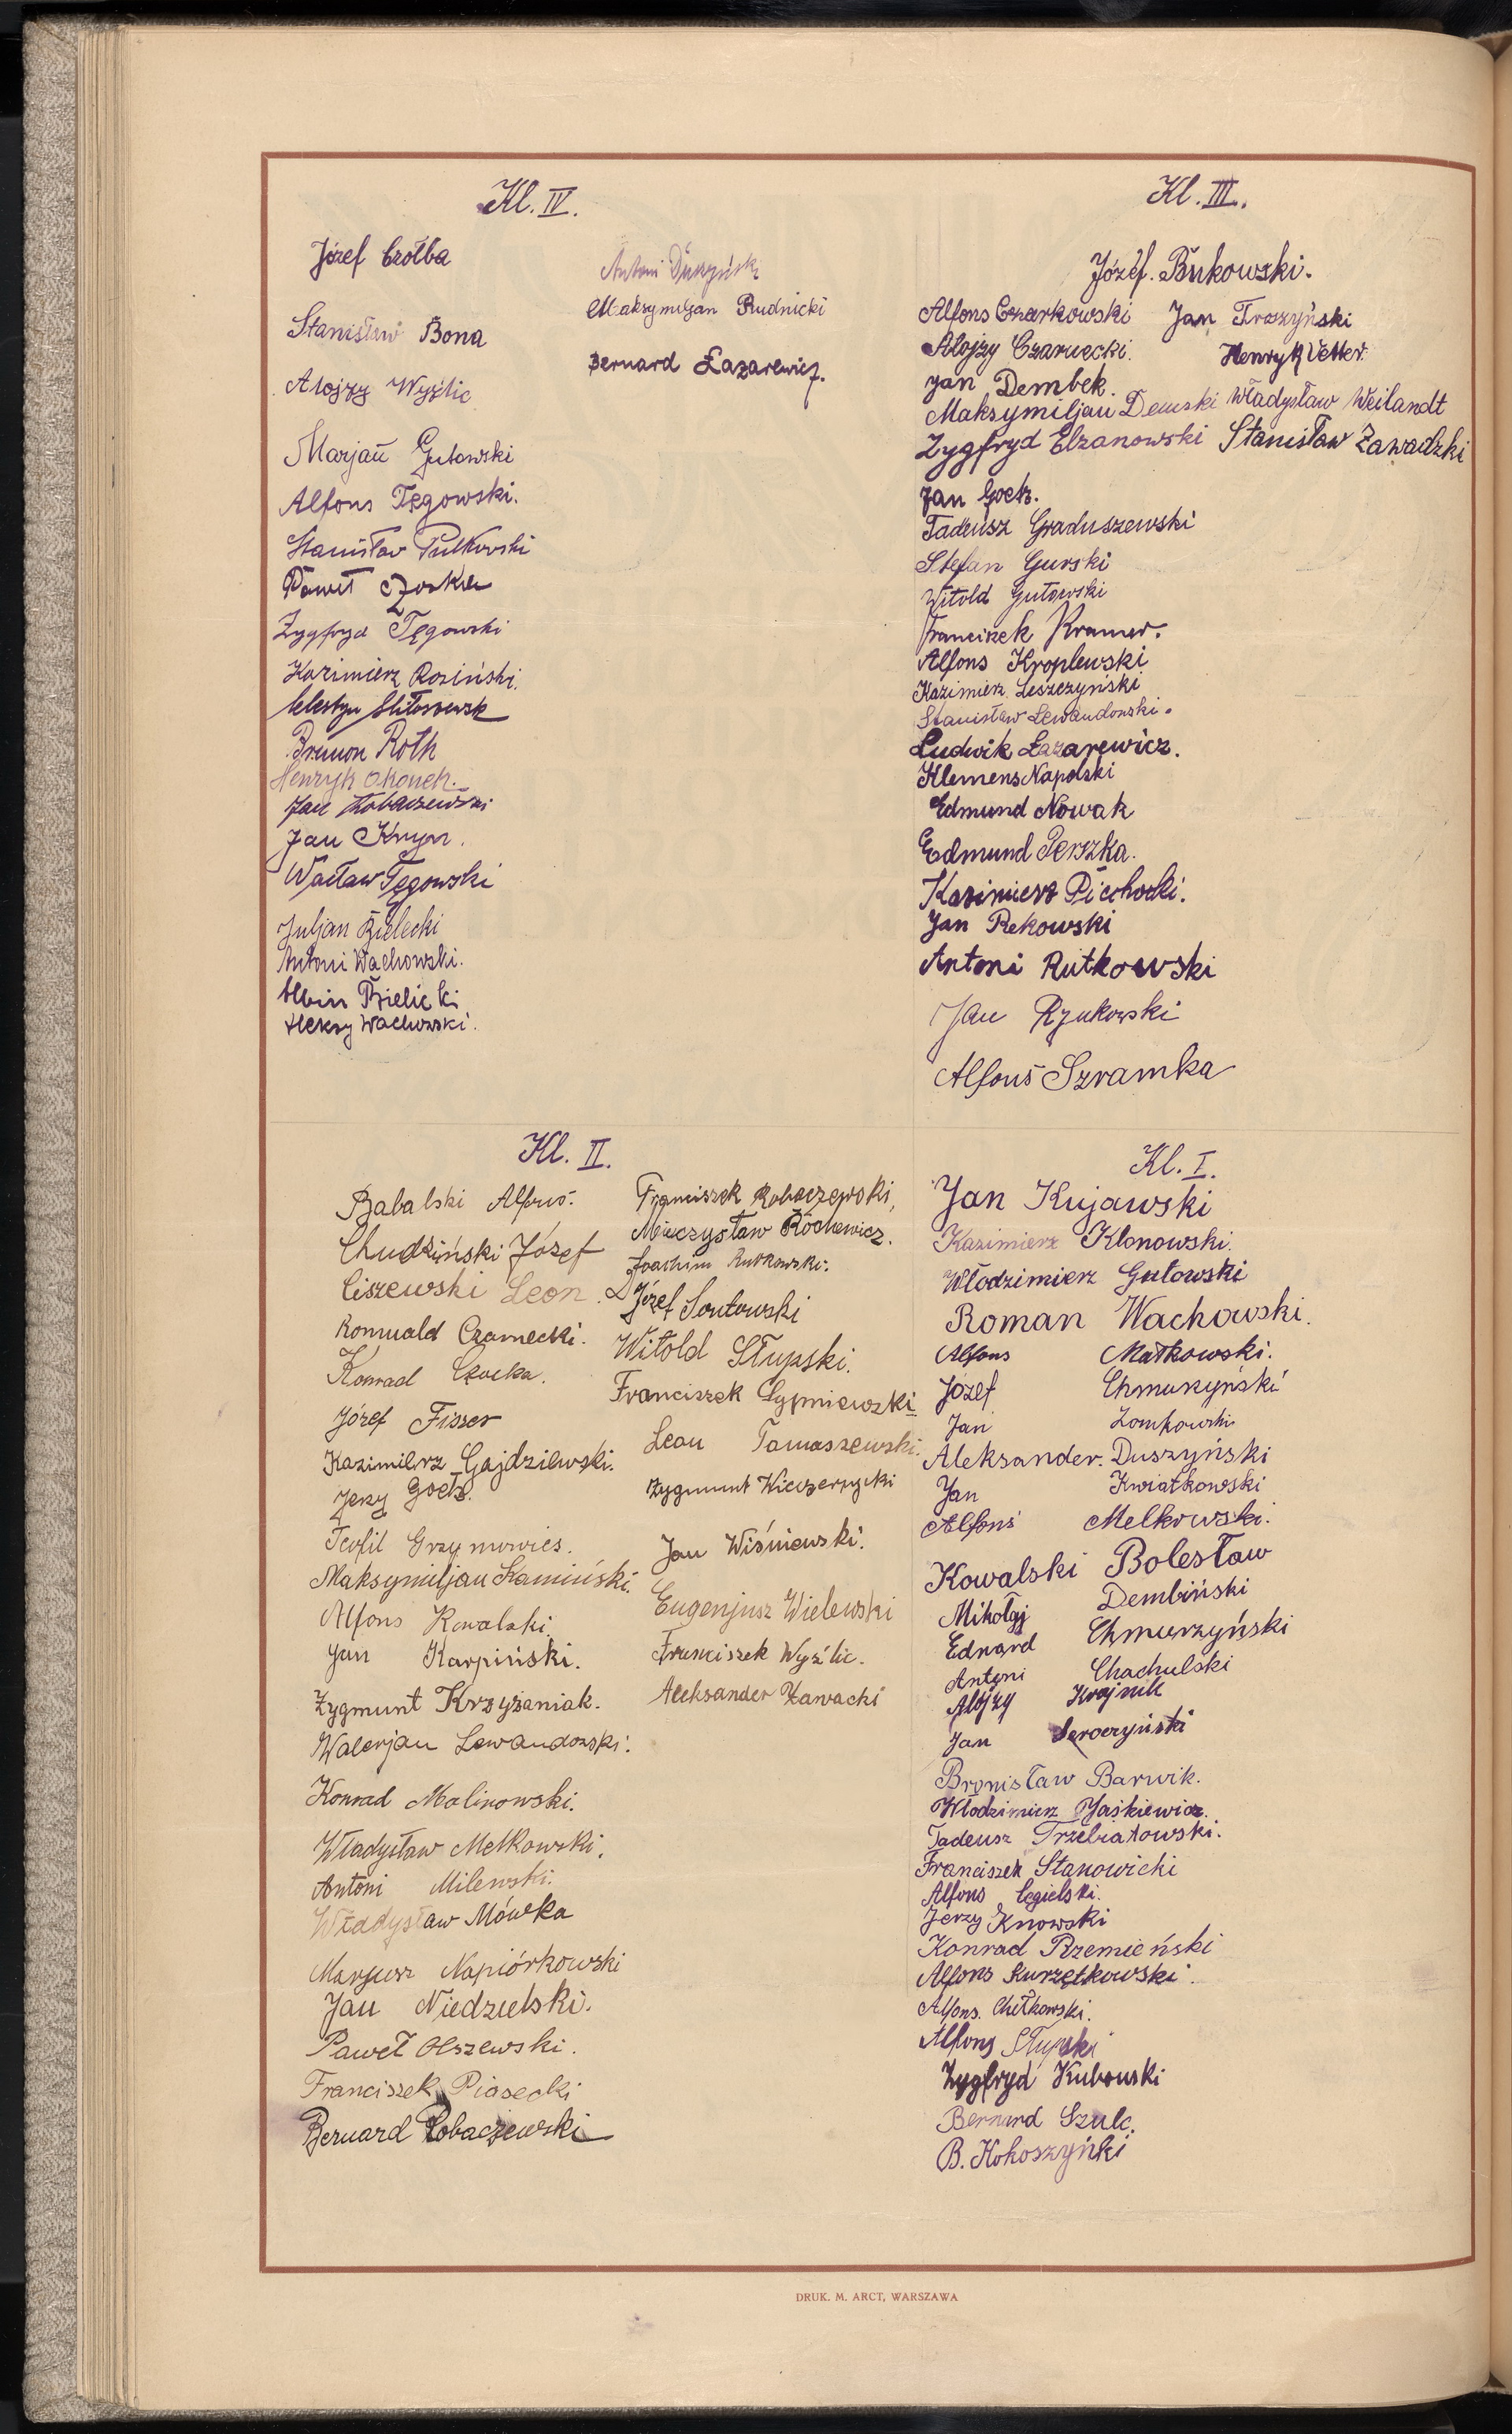 Kl. IV.
Józef Czołba
Stanisław Bona
Alojzy Wyżlic
Marjan Gutowski
Alfons Tęgowski.
Stanisław Pułkowski
Paweł
Zygfryd Tęgowski
Kazimierz Rosiński.
Celestyn
Brunon Roth
Henryk Okonek.
Jan Robaczewski
Jan Knyn.
Wacław Tęgowski
Juljan Bielecki
Antoni Wachowski.
Albin Bielicki
Aleksy Wachowski.
Antoni Duszyński
Maksymiljan Rudnicki
Bernard Łazarewicz.
Kl. III.
Józef. Bukowski.
Alfons Czarkowski
Alojzy Czarnecki.
Jan Dembek.
Maksymiljan Demski
Zygfryd Elzanowski
Jan Goetz.
Tadeusz Graduszewski
Stefan Gurski
Witold Gutowski
Franciszek Kramer.
Alfons Kroplewski
Kazimierz Leszczyński
Stanisław Lewandowski.
Ludwik Łazarewicz.
Klemens Napolski
Edmund Nowak
Edmund Perszka.
Kazimierz Piechocki.
Jan Rekowski
Antoni Rutkowski
Jan Rzukowski
Alfons Szramka
Jan Troszyński
Henryk Vetter.
Władysław Weilandt
Stanisław Zawadzki
Kl. II.
Babalski Alfons.
Chudziński Józef
Ciszewski Leon.
Romuald Czarnecki.
Konrad Czocka.
Józef Fisser
Kazimierz Gajdzilewski.
Jerzy Goetz.
Teofil Grzymowics.
Maksymiljan Kamiński.
Alfons Kowalski.
Jan Karpiński.
Zygmunt Krzyżaniak.
Walerjan Lewandowski.
Konrad Malinowski.
Władysław Melkowski.
Antoni Milewski.
Władysław Mówka
Marjusz Napiórkowski
Jan Niedzielski.
Paweł Olszewski.
Franciszek Piasecki
Bernard Robaczewski
Franciszek Robaczewski,
Mieczysław Rochewicz.
Joachim Rutkowski.
Józef Sontowski
Witold Słupski.
Franciszek Sypniewski
Leon Tomaszewski.
Zygmunt Wieczerzycki
Jan Wiśniewski.
Eugenjusz Wielewski
Franciszek Wyżlic.
Aleksander Zawacki
Kl. I.
Jan Kujawski
Kazimierz Klonowski.
Włodzimierz Gutowski
Roman Wachowski.
Alfons Małkowski.
Józef Chmurzyński
Jan Zomkowski
Aleksander. Duszyński
Jan Kwiatkowski
Alfons Melkowski.
Kowalski Bolesław
Mikołaj Dembiński
Edward Chmurzyński
Antoni Chachulski
Alojzy Krajnik
Jan Seroczyński
Bronisław Barwik.
Włodzimierz Jaśkiewicz.
Tadeusz Trzebiatowski.
Franciszek Stanowicki
Alfons Cegielski.
Jerzy Knowski
Konrad Rzemieński
Alfons Kurzętkowski.
Alfons. Chełkowski.
Alfons Słupski
Zygfryd Kubowski
Bernard Szulc.
B. Kokoszyński
DRUK. M. ARCT, WARSZAWA